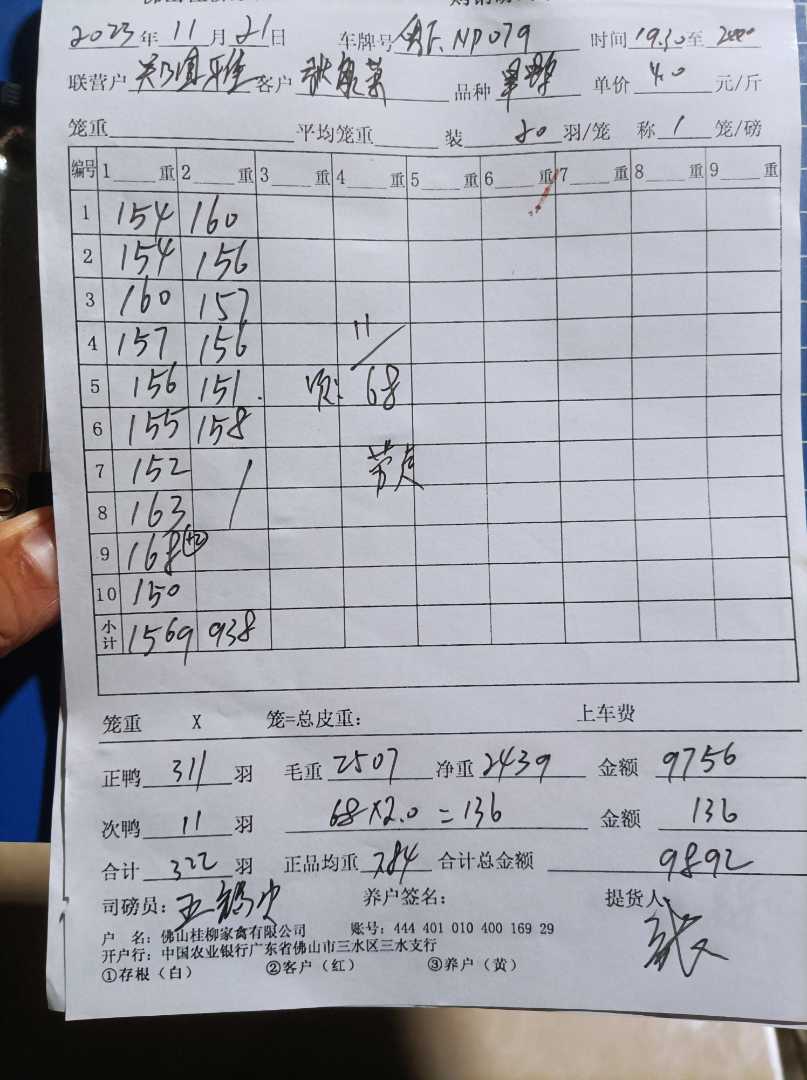 2023年11月21日 车牌号 NP079 时间19.30至
联营户 客户 品种 单价4.0元/斤
笼重 平均笼重 装20羽/笼 称1笼/磅
编号 1 重 2 重 3 重 4 重 5 重 6 重 7 重 8 重 9 重
1 154 160
2 154 156
3 160 157
4 157 156 11
5 156 151. 68
6 155 158
7 152
8 163
9 168 +2
10 150
小计 1569 938
笼重 X 笼=总皮重: 上车费
正鸭311羽 毛重2507 净重2439 金额9756
次鸭11羽 68×2.0=136 金额136
合计322羽 正品均重7.84 合计总金额9892
司磅员: 养户签名: 提货人
户 名: 佛山桂柳家禽有限公司 账号: 444 401 010 400 169 29
开户行: 中国农业银行广东省佛山市三水区三水支行
①存根(白) ②客户(红) ③养户(黄)